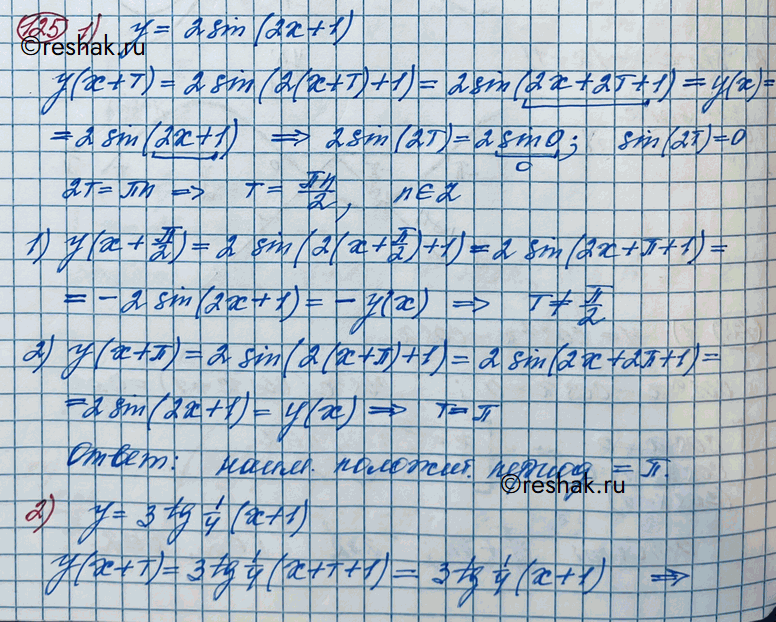 125 1) y = 2 sin (2x+1)
©reshak.ru
y(x+T) = 2 sin (2(x+T)+1) = 2 sin(2x+2T+1) = y(x) =
= 2 sin(2x+1) ⟹ 2 sin(2T) = 2 sin 0; sin(2T)=0
0
2T = πn ⟹ T = πn/2, n∈Z
1) y(x+π/2) = 2 sin(2(x+π/2)+1) = 2 sin(2x+π+1) =
= -2 sin(2x+1) = -y(x) ⟹ T ≠ π/2
2) y(x+π) = 2 sin(2(x+π)+1) = 2 sin(2x+2π+1) =
= 2 sin(2x+1) = y(x) ⟹ T = π
Ответ: наим. положит. период = π.
©reshak.ru
2) y = 3 tg 1/4 (x+1)
y(x+T) = 3 tg 1/4 (x+T+1) = 3 tg 1/4 (x+1) ⟹